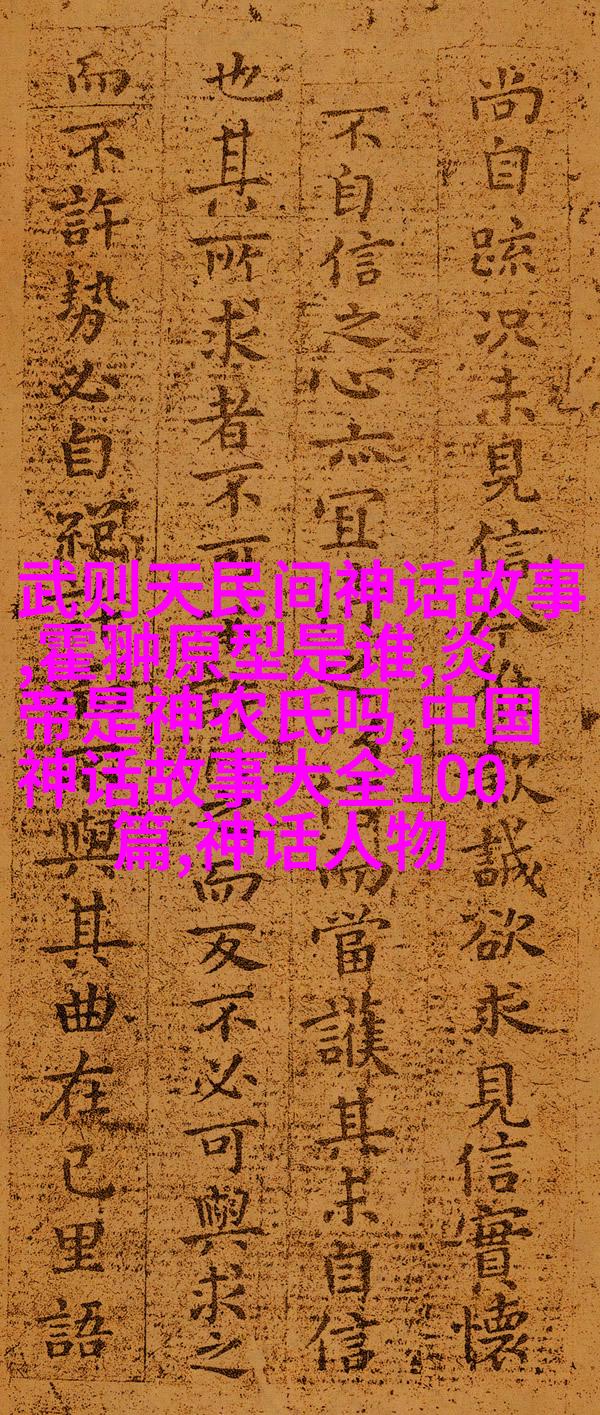 武则天民间神话故事
,霍翀原型是谁,炎
帝是神农氏吗,中国
神话故事大全100
篇,神话人物
尚自疏况未見信欲誠欲求見信實懷
不自信之心亦宜而當護其未自信
也其所求者不可而反不必可與求之
而不許勢必自絕與其曲在己里語